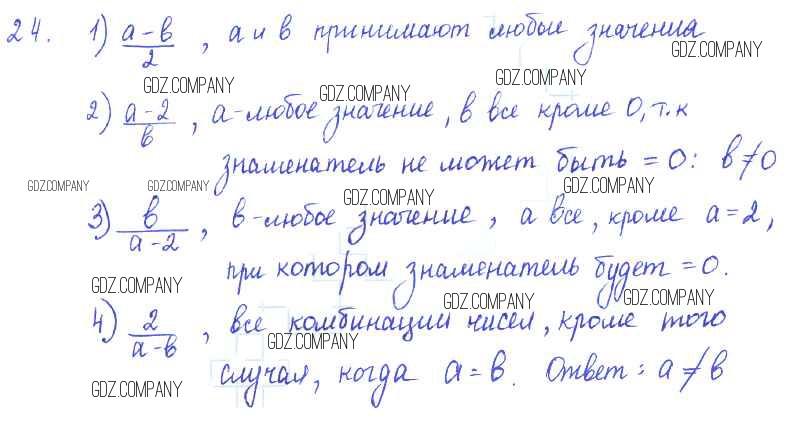 24. 1) a-b/2, a и b принимают любые значения
GDZ.COMPANY
GDZ.COMPANY GDZ.COMPANY GDZ.COMPANY
2) a-2/b, a-любое значение, b все кроме 0, т.к
знаменатель не может быть = 0: b≠0
GDZ.COMPANY GDZ.COMPANY GDZ.COMPANY GDZ.COMPANY
3) b/a-2, b-любое значение, a все, кроме a=2,
при котором знаменатель будет =0.
GDZ.COMPANY GDZ.COMPANY GDZ.COMPANY
4) 2/a-b, все комбинации чисел, кроме того
GDZ.COMPANY
случая, когда a=b. Ответ: a≠b
GDZ.COMPANY